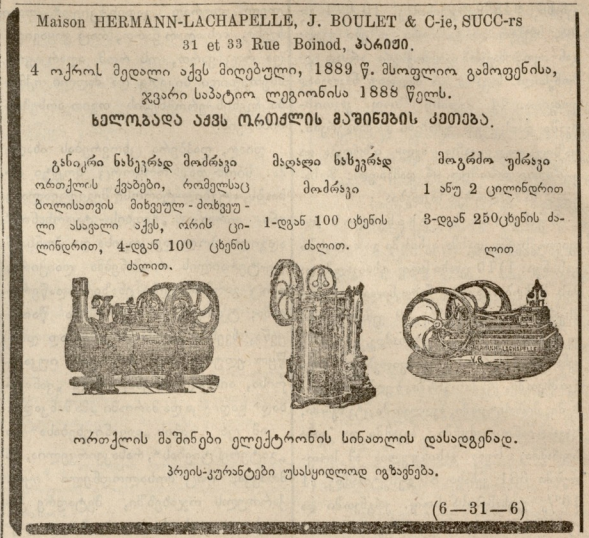 Maison HERMANN-LACHAPELLE, J. BOULET & C-ie, SUCC-rs
31 et 33 Rue Boinod, პარიჟი.
4 ოქროს მედალი აქვს მიღებული, 1889 წ. მსოფლიო გამოფენისა,
ჯვარი საპატიო ლეგიონისა 1888 წელს.
ხელობადა აქვს ორთქლის მაშინების კეთება.
განიერი ნახევრად მოძრავი
ორთქლის ქვაბები, რომელსაც
ბოლისათვის მიხვეულ-მოხვეუ-
ლი ასავალი აქვს, ორის ცი-
ლინდრით, 4-დგან 100 ცხენის
ძალით.
მაღალი ნახევრად
მოძრავი
1-დგან 100 ცხენის
ძალით.
მოგრძო უძრავი
1 ანუ 2 ცილინდრით
3-დგან 250 ცხენის ძა-
ლით
HERMANN-LACHAPELLE
ორთქლის მაშინები ელექტრონის სინათლის დასადგენად.
პრეის-კურანტები უსასყიდლოდ იგზავნება.
(6—31—6)